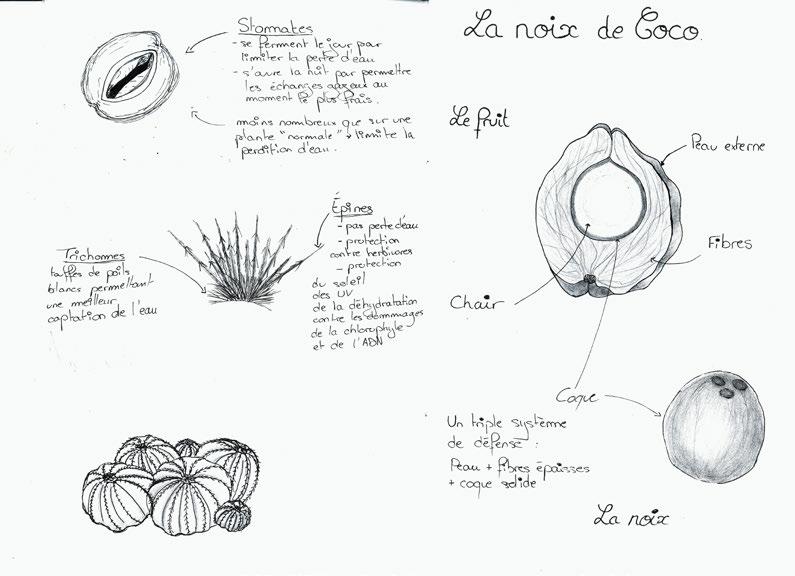 Stomates
- se ferment le jour par
limiter la perte d'eau
- s'ouvre la nuit par permettre
les échanges gazeux au
moment le plus frais.
moins nombreux que sur une
plante "normale" → limite la
perdition d'eau.
Trichomes
touffes de poils
blancs permettant
une meilleur
captation de l'eau
Épines
- pas perte d'eau
- protection
contre herbivores
- protection
du soleil
des UV
de la déshydratation
contre les dommages
de la chlorophyle
et de l'ADN
La noix de Coco
Le fruit
Peau externe
Fibres
Chair
Coque
Un triple système
de défense :
Peau + fibres épaisses
+ coque solide
La noix